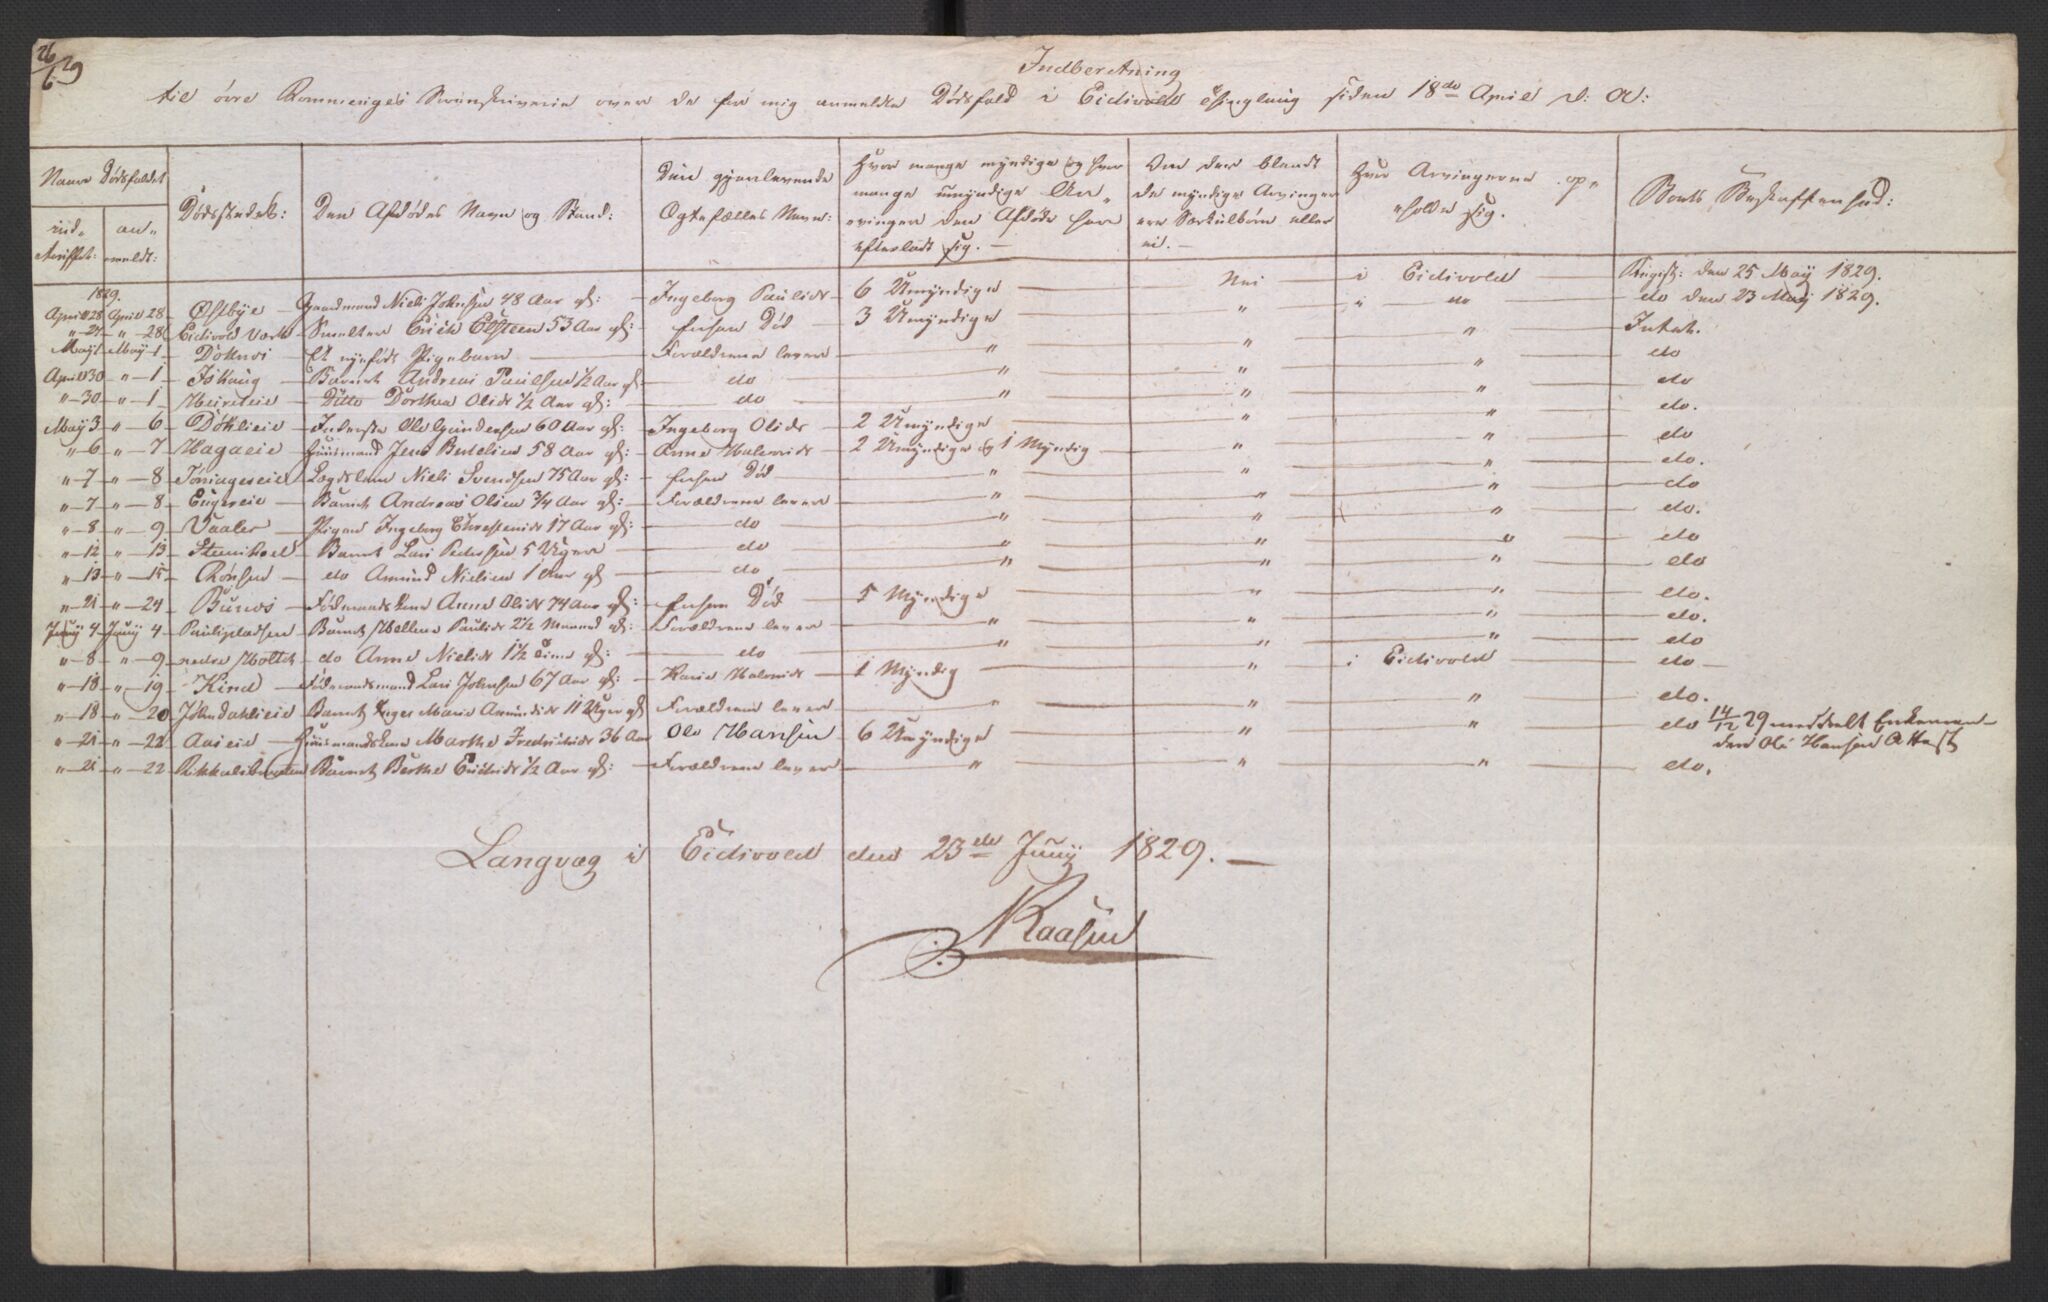 26/6 29
Indberetning
til øvre Rommeriges Sorenskriverie over de for mig anmeldte Dødsfald i Eidsvold Thinglaug siden 18de April d: A:
Naar Dødsfaldet
ind-
truffet:
an-
meldt:
Dødsstedet:
Den Afdødes Navn og Stand:
Den gjenlevende
Ægtefælles Navn:
Hvor mange myndige og hvor
mange umyndige Ar-
vinger den Afdøde har
efterladt sig. —
Om der blandt
de myndige Arvinger
ere Særkulbørn eller
ei. —
Hvor Arvingerne op-
holde sig.
Boets Beskaffenhed:
1829.
April 28 April 28 Østbye Gaardmand Niels Johnsen 48 Aar gl: Ingeborg Paulsdr 6 Umyndige Nei i Eidsvold Regist: den 25 May 1829.
" 27 " 28 Eidsvold Værk Smelter Erich Elsteen 53 Aar gl: hustru Død 3 Umyndige " " do do den 23 May 1829.
May 1 May 1 Doknes Et nyfødt Pigebarn Forældrene lever " " " Intet.
April 30 " 1 Ishaug Barnet Andreas Paulsen 1/2 Aar gl: do " " " do
" 30 " 1 Ditto Dorthea Olsdr 1/2 Aar gl: do " " " do
May 3 " 6 Inderste Ole Gundersen 60 Aar gl: Ingeborg Olsdr 2 Umyndige " " do.
" 6 " 7 Hagaeie Huusmand Jens Bertelsen 58 Aar gl: Anne Halvorsdr 2 Umyndige og 1 Myndig " " do
" 7 " 8 Lægdslem Niels Svendsen 75 Aar gl: Død " " " do.
" 7 " 8 Barnet Andreas Olsen 3/4 Aar gl: Forældrene lever " " " do
" 8 " 9 Vaaler Pigen Ingeborg Christensdr 17 Aar gl: do " " " do.
" 12 " 13 Barnet Lars Pedersen 5 Uger do " " " do
" 13 " 15 Rønsen do Amund Nielsen 1 Aar gl do " " " do
" 21 " 24 Bunes Føderaadskone Anne Olsdr 74 Aar gl: Død 5 Myndige " " do.
Juny 4 Juny 4 Paulspladsen Barnet Hellene Paulsdr 2 1/2 Maaned gl: Forældrene lever " " " do.
" 8 " 9 nedre Holtet do Anne Nielsdr 1 1/2 Time gl: do " " " do
" 18 " 19 Kind Føderaadsmand Lars Johnsen 67 Aar gl: Karie Halvorsdr 1 Myndig " i Eidsvold do —
" 18 " 20 Barnet Inger Marie Amundsdr 11 Uger gl Forældrene lever " " " do.
" 21 " 22 Aaseie Huusmandskone Marthe Fredrichsdr 36 Aar Ole Hansen 6 Umyndige " " do 14/12 29 meddeelt Enkeman-
den Ole Hansen Attest
" 21 " 22 Barnet Berthe Erichsdr 1/2 Aar gl: Forældrene lever " " " do.
Langvæg i Eidsvold den 23de Juny 1829. —
Raasen